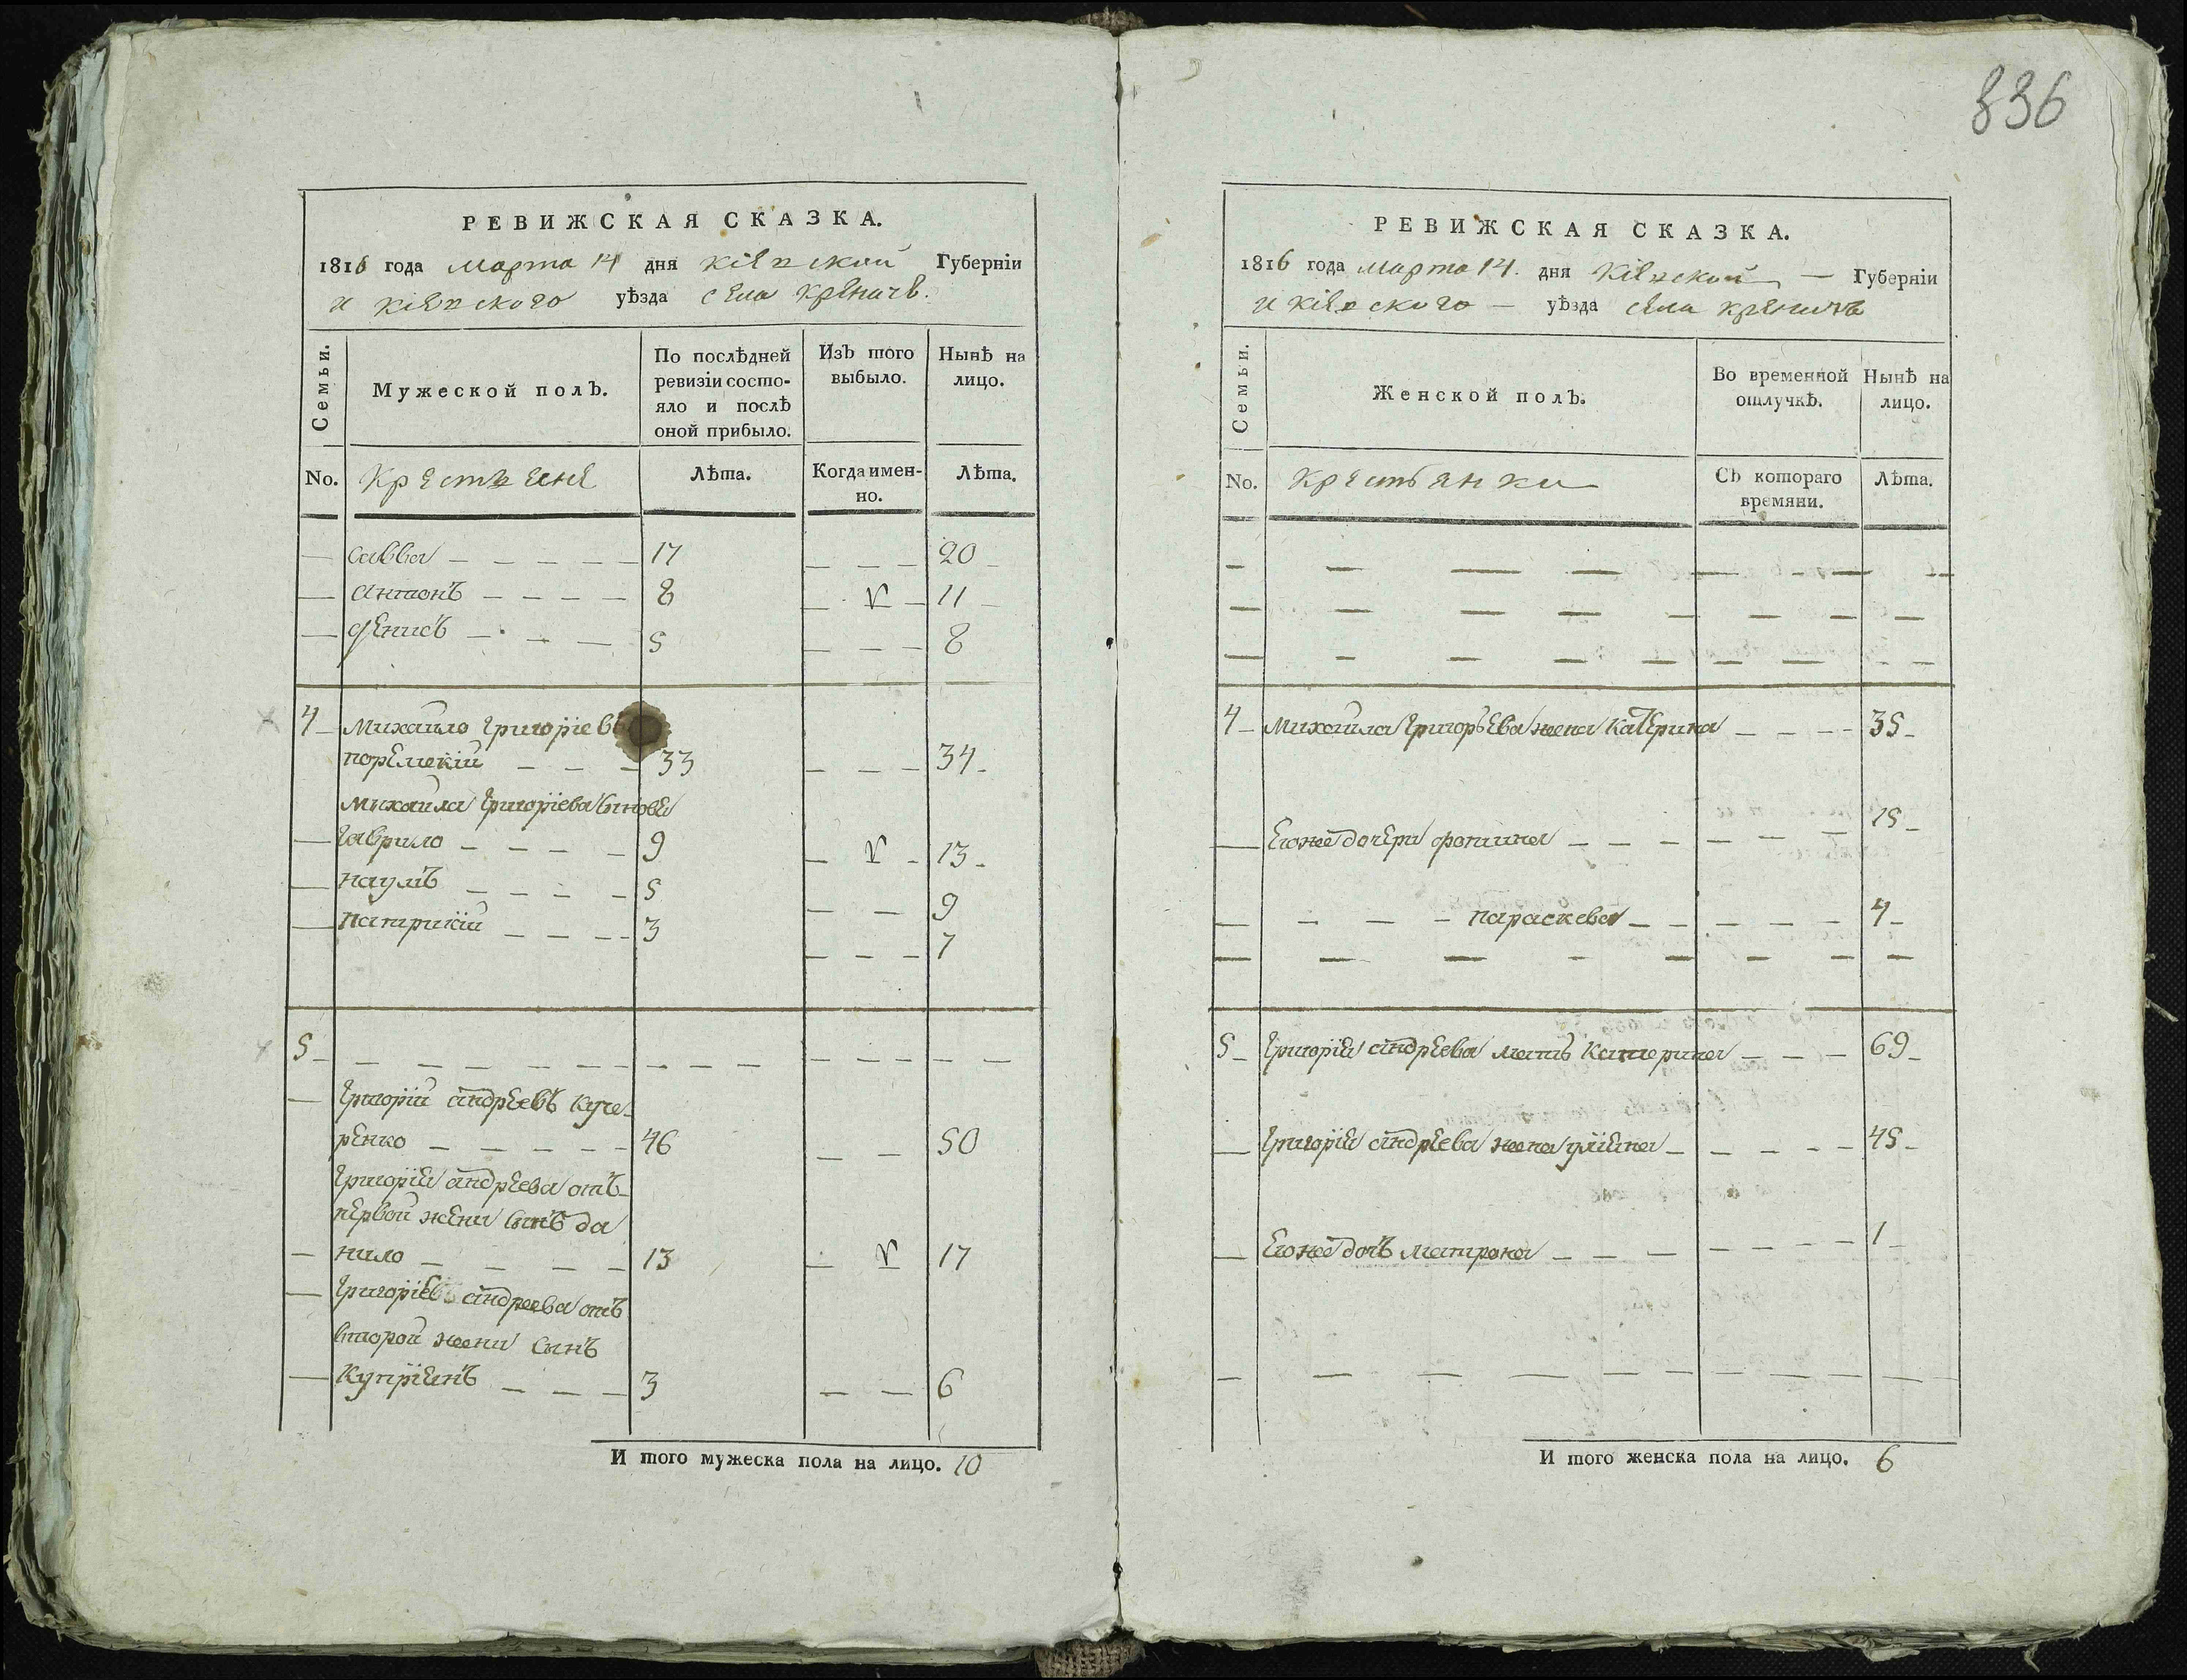 836
РЕВИЖСКАЯ СКАЗКА.
1816 года марта 14 дня Кіевской Губерніи
и Кіевского уѣзда села Креничь.
Семьи.
Мужеской полъ.
По послѣдней ревизіи состо-
яло и послѣ
оной прибыло.
Изъ того
выбыло.
Нынѣ на
лицо.
No. Крестьяне
Лѣта.
Когда имен-
но.
Лѣта.
Савва 17 20
Антонъ 8 11
Денисъ 5 8
4 Михайло Григоріевъ
33 34
Михайла Григоріева синовя
Гаврило 9 13
Наумъ 5 9
Патрикій 3 7
5
Григорій Андреевъ Куче-
ренко 46 50
Григорія Андреева отъ
первой жени синъ Да
нило 13 17
Григоріев Андреева отъ
второй жени синъ
Купріянъ 3 6
И того мужеска пола на лицо. 10
РЕВИЖСКАЯ СКАЗКА.
1816 года марта 14. дня Кіевской Губерніи
и Кіевского уѣзда села Креничь
Семьи.
Женской полъ.
Во временной
отлучкѣ.
Нынѣ на
лицо.
No. Крестьянки
Съ котораго
времяни.
Лѣта.
4 Михайла Григорьева жена Катерина 35
Егоже дочери Фотина 15
Параскева 4
5 Григорія Андреева мать Катерина 69
Григорія Андреева жена Уліяна 45
Егоже дочь Матрона 1
И того женска пола на лицо. 6